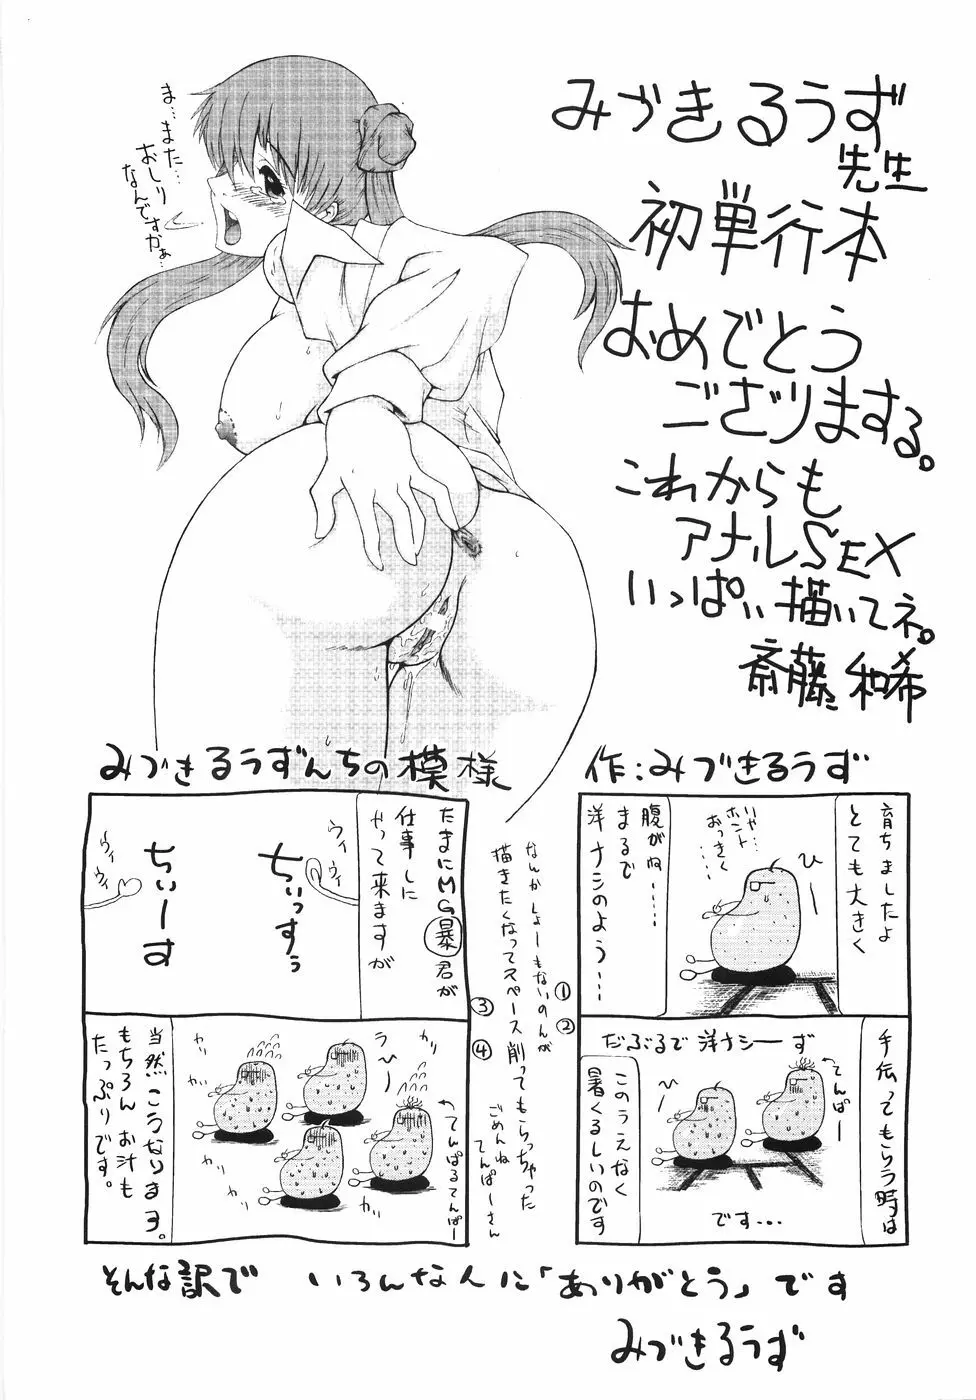 みづきるうず
先生
初単行本
おめでとう
ござりまする。
これからも
アナルSEX
いっぱい描いてネ。
斎藤和希
ま…また…
おしり
なんですかぁ…
作:みづきるうず
育ちましたよ
とても大きく
いや…
ホント
おっきく
……
ひー
腹がね……
まるで
洋ナシのよう…
手伝ってもらう時は
だぶるで洋ナシーず
てんぱー
ひー
このうえなく
暑くるしいのです
です…
みづきるうずんちの模様
たまにMG暴君が
仕事しに
やって来ますが
ちぃっすぅ
ウィ
ウィ
ちぃーす
ウィ
ウィ
うひー
てんぱるてんぱー
カリ
カリ
カリ
カリ
当然こうなりますヨ。
もちろんお汁も
たっぷりです。
なんかしょーもないのんが
描きたくなってスペース削ってもらっちゃった
ごめんね
てんぱーさん
①
②
③
④
そんな訳で いろんな人に「ありがとう」です
みづきるうず